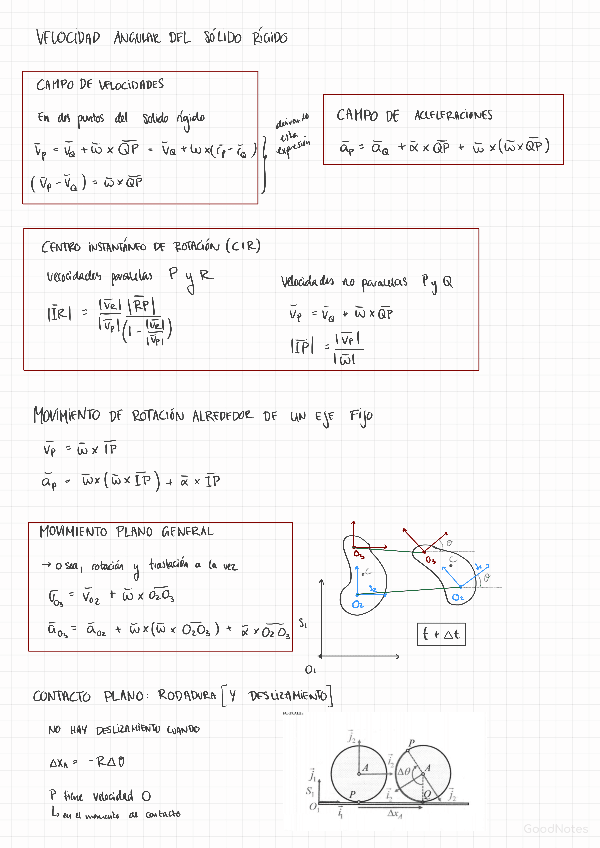 VELOCIDAD ANGULAR DEL SÓLIDO RÍGIDO
CAMPO DE VELOCIDADES
En dos puntos del sólido rígido
v̄_P = v̄_Q + ω̄ × Q̄P̄ = v̄_Q + ω × (r̄_P - r̄_Q)
(v̄_P - v̄_Q) = ω̄ × Q̄P̄
derivando
esta
expresión
CAMPO DE ACELERACIONES
ā_P = ā_Q + ᾱ × Q̄P̄ + ω̄ × (ω̄ × Q̄P̄)
CENTRO INSTANTÁNEO DE ROTACIÓN (CIR)
velocidades paralelas P y R
|ĪR| = |v̄_R| |R̄P̄| / |v̄_P| (1 - |v̄_R| / |v̄_P|)
Velocidades no paralelas P y Q
v̄_P = v̄_Q + ω̄ × Q̄P̄
|ĪP̄| = |v̄_P| / |ω̄|
MOVIMIENTO DE ROTACIÓN ALREDEDOR DE UN EJE FIJO
v̄_P = ω̄ × ĪP̄
ā_P = ω̄ × (ω̄ × ĪP̄) + ᾱ × ĪP̄
MOVIMIENTO PLANO GENERAL
→ osea, rotación y traslación a la vez
v̄_O3 = v̄_O2 + ω̄ × O2O3
ā_O3 = ā_O2 + ω̄ × (ω̄ × O2O3) + ᾱ × O2O3
O3
C
O2
S2
S1
O1
O3
θ
C
S2
θ
O2
t + Δt
CONTACTO PLANO: RODADURA [Y DESLIZAMIENTO]
NO HAY DESLIZAMIENTO CUANDO
Δx_A = -RΔθ
P tiene velocidad 0
↳ en el momento de contacto
j2
A
i2
j1
S1
O1
i1
P
P
Δθ
A
i2
Q
j2
Δx_A
GoodNotes